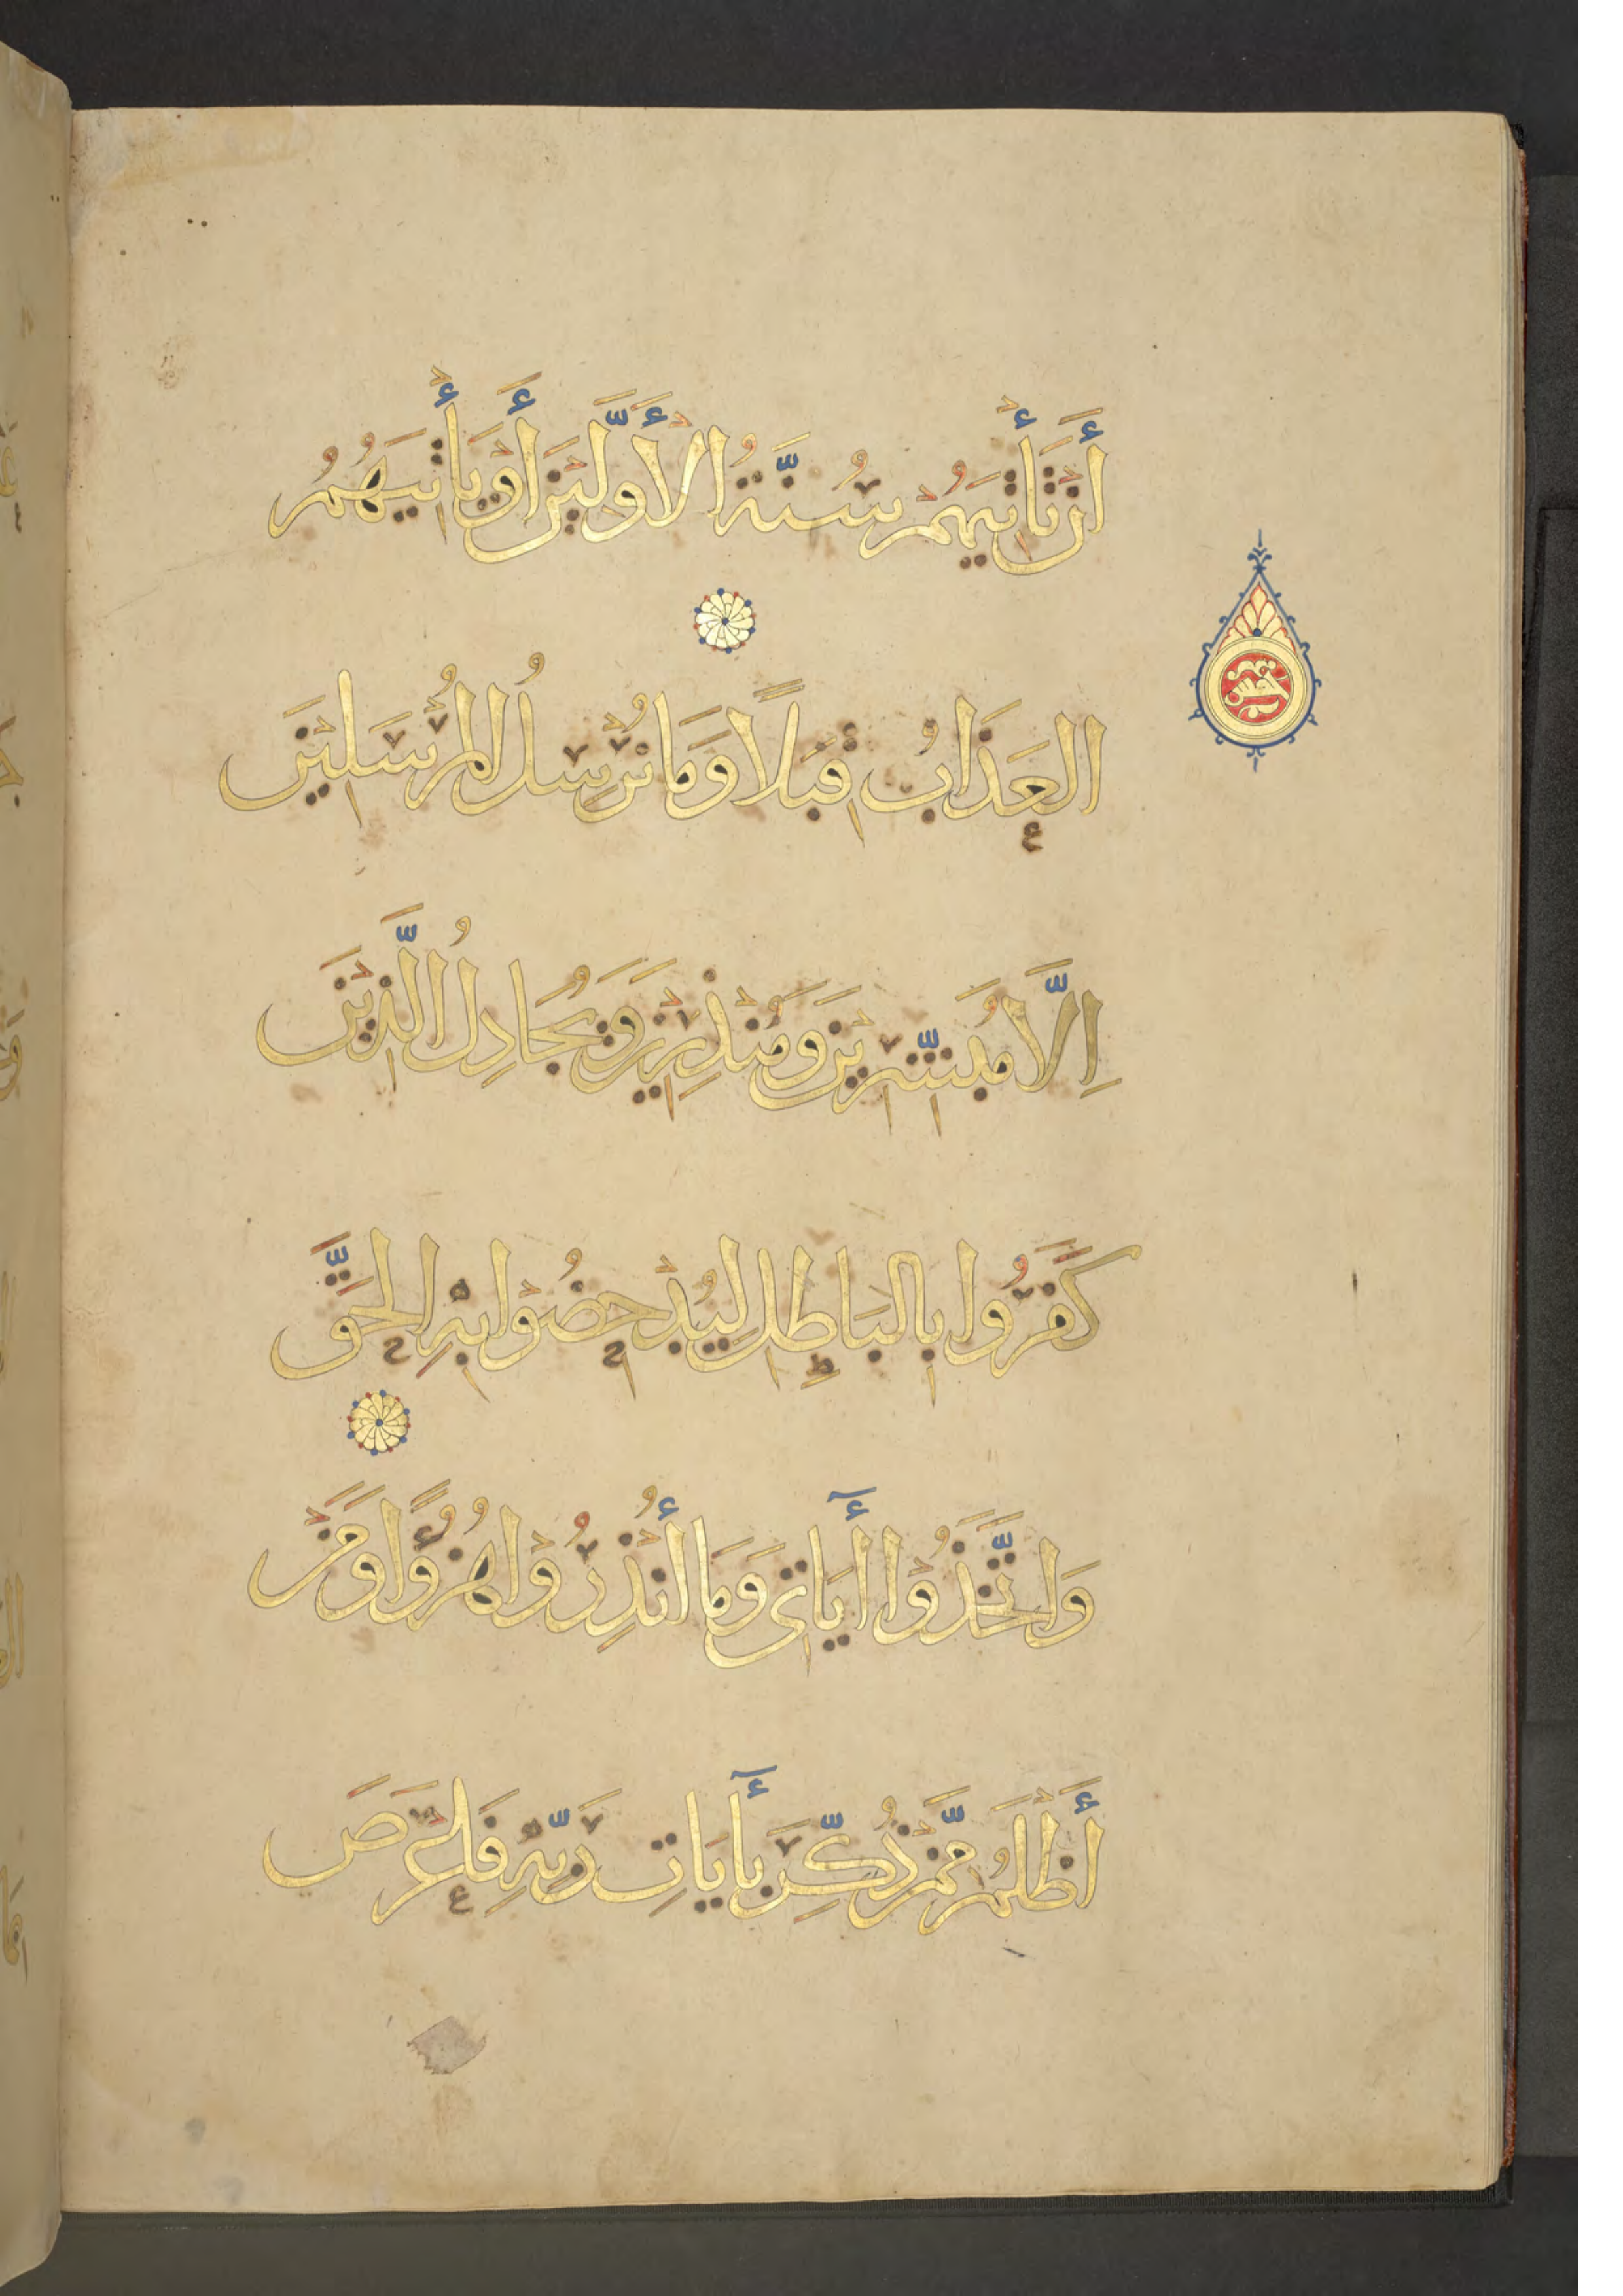 أَنْ تَأْتِيَهُمْ سُنَّةُ الْأَوَّلِينَ أَوْ يَأْتِيَهُمُ
الْعَذَابُ قِبَلًا وَمَا نُرْسِلُ الْمُرْسَلِينَ
إِلَّا مُبَشِّرِينَ وَمُنْذِرِينَ وَيُجَادِلُ الَّذِينَ
كَفَرُوا بِالْبَاطِلِ لِيُدْحِضُوا بِهِ الْحَقَّ
وَاتَّخَذُوا أٓيَاتِى وَمَا أُنْذِرُوا هُزُؤًا وَمَنْ
أَظْلَمُ مِمَّنْ ذُكِّرَ بِأٓيَاتِ رَبِّهِ فَأَعْرَضَ